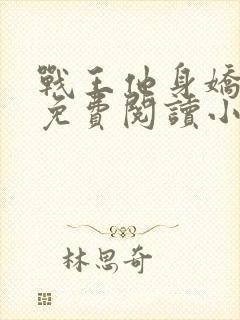 戰王他身嬌
免費閱讀小
林思奇